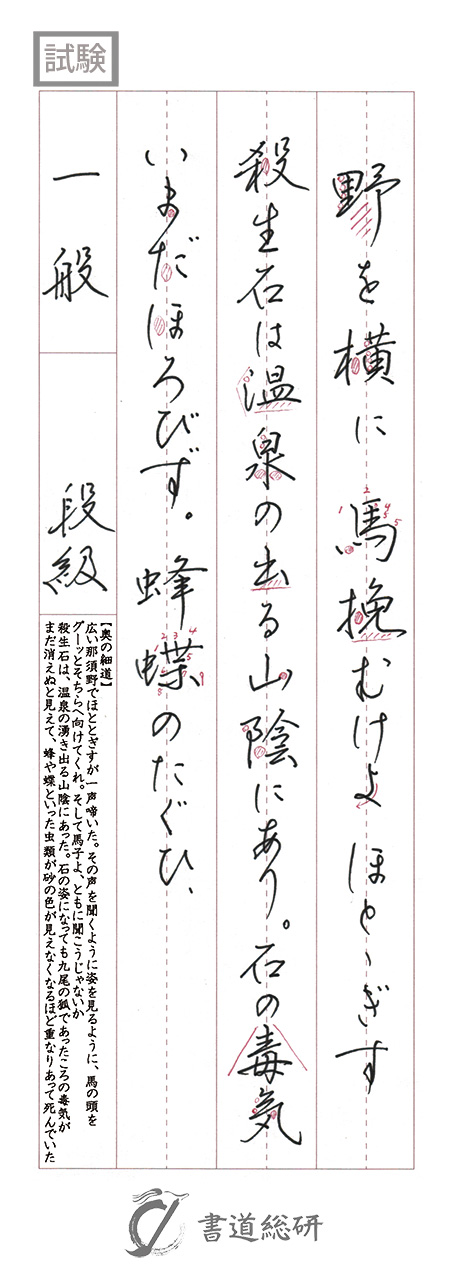 試験
野を横に 馬挽むけよ ほとゝぎす
殺生石は温泉の出る山陰にあり。石の毒気
いまだほろびず。蜂蝶のたぐひ、
一般
段級
【奥の細道】
広い那須野でほととぎすが一声啼いた。その声を聞くように姿を見るように、馬の頭を
グーッとそちらへ向けてくれ。そして馬子よ、ともに聞こうじゃないか
殺生石は、温泉の湧き出る山陰にあった。石の姿になっても九尾の狐であったころの毒気が
まだ消えぬと見えて、蜂や蝶といった虫類が砂の色が見えなくなるほど重なりあって死んでいた
書道総研